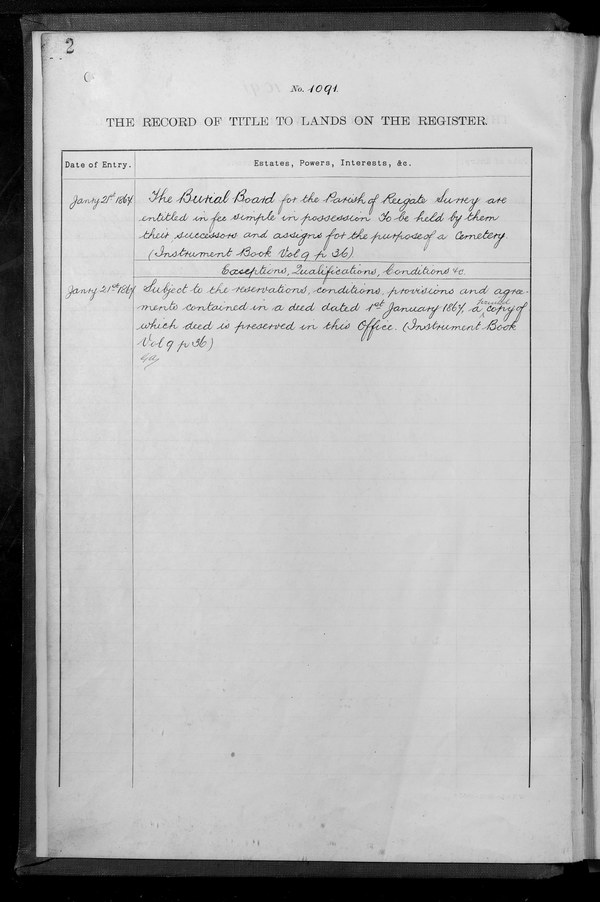 2
No. 1091.
THE RECORD OF TITLE TO LANDS ON THE REGISTER.
Date of Entry. Estates, Powers, Interests, &c.
Janry 21st 1864 The Burial Board for the Parish of Reigate Surrey are
entitled in fee simple in possession To be held by them
their successors and assigns for the purpose of a Cemetery.
(Instrument Book Vol 9 p 36)
Exceptions, Qualifications, Conditions &c.
Janry 21st 1864 Subject to the reservations, conditions, provisions and agree-
ments contained in a deed dated 1st January 1864, a printed copy of
which deed is preserved in this Office. (Instrument Book
Vol 9 p 36)